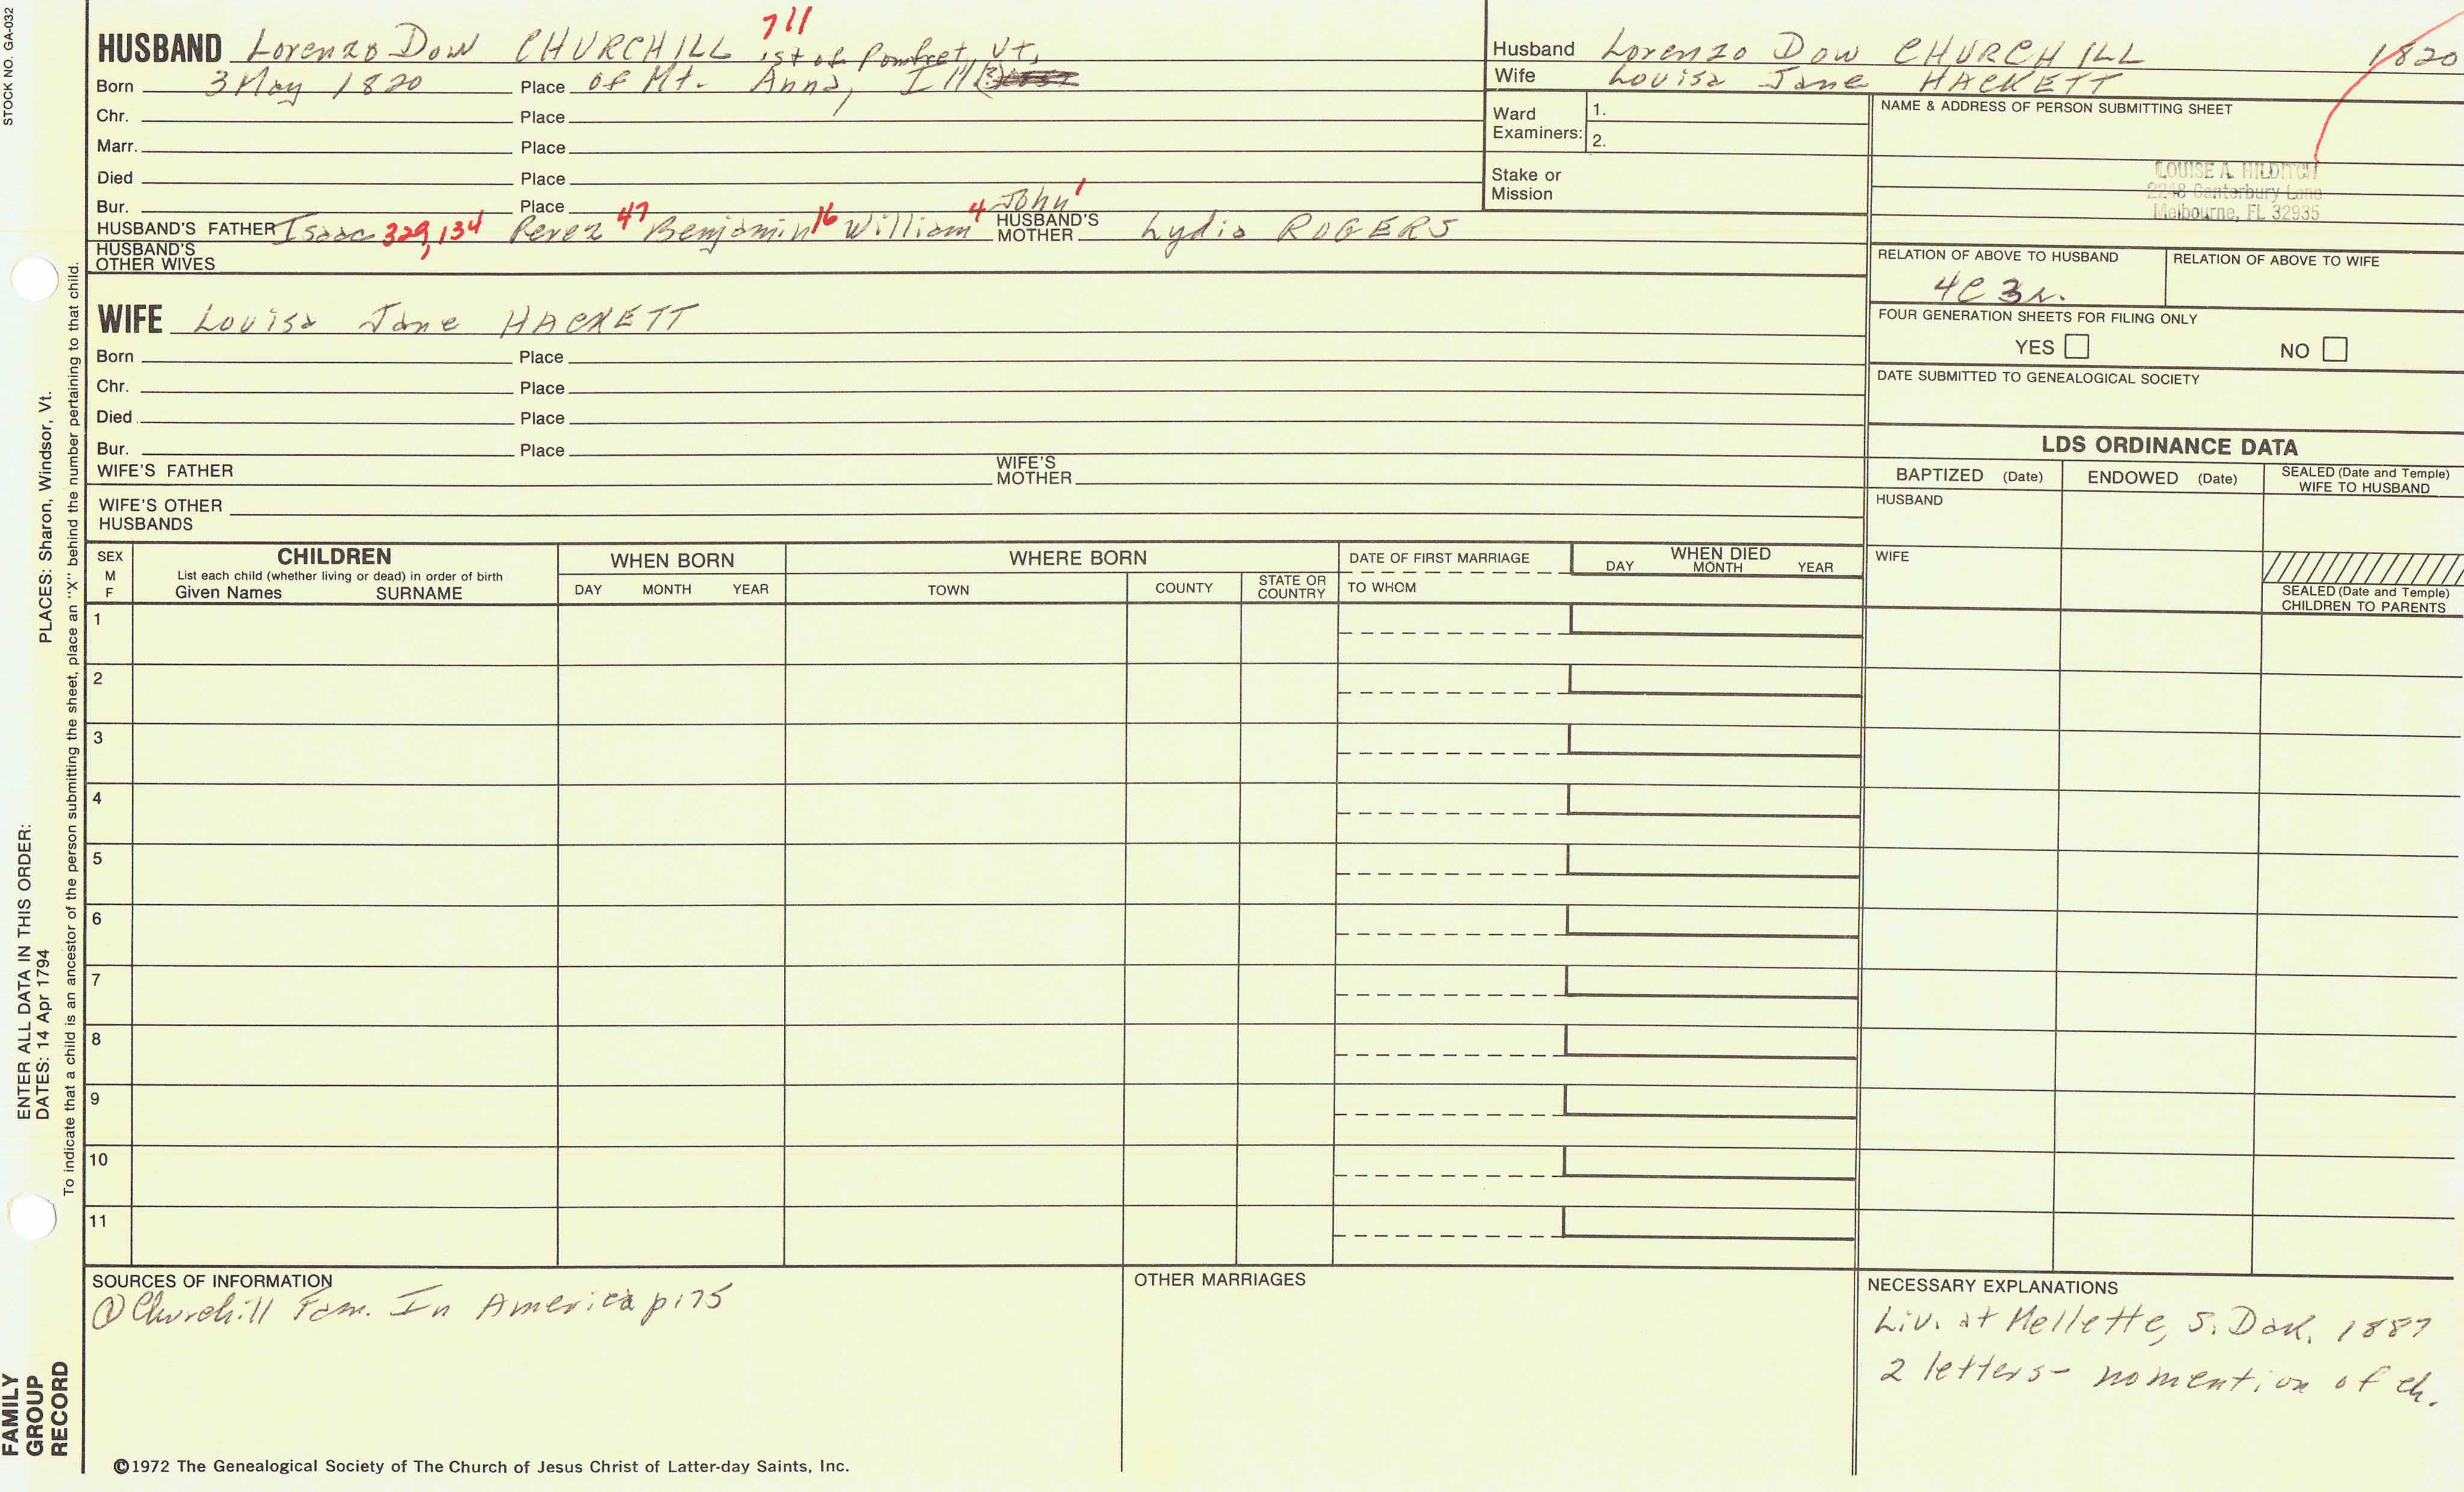 STOCK NO. GA-032
HUSBAND Lorenzo Dow CHURCHILL 711 ist of Pomfret, Vt,
Born 3 May 1820 Place of Mt. Anna, Ill
Chr. Place
Marr. Place
Died Place
Bur. Place
HUSBAND'S FATHER Isaac 329,134 Perez 47 Benjamin 16 William 4 John 1 HUSBAND'S MOTHER Lydia ROGERS
HUSBAND'S OTHER WIVES
WIFE Louisa Jane HACKETT
Born Place
Chr. Place
Died Place
Bur. Place
WIFE'S FATHER WIFE'S MOTHER
WIFE'S OTHER HUSBANDS
Husband Lorenzo Dow CHURCHILL 1820
Wife Louisa Jane HACKETT
Ward Examiners: 1.
2.
Stake or Mission
NAME & ADDRESS OF PERSON SUBMITTING SHEET
LOUISE A. HILDITCH
2248 Canterbury Lane
Melbourne, FL 32935
RELATION OF ABOVE TO HUSBAND RELATION OF ABOVE TO WIFE
4C 3r.
FOUR GENERATION SHEETS FOR FILING ONLY
YES NO
DATE SUBMITTED TO GENEALOGICAL SOCIETY
LDS ORDINANCE DATA
BAPTIZED (Date) ENDOWED (Date) SEALED (Date and Temple) WIFE TO HUSBAND
HUSBAND
WIFE
SEALED (Date and Temple) CHILDREN TO PARENTS
SEX M F
CHILDREN
List each child (whether living or dead) in order of birth
Given Names SURNAME
WHEN BORN
DAY MONTH YEAR
WHERE BORN
TOWN COUNTY STATE OR COUNTRY
DATE OF FIRST MARRIAGE
TO WHOM
WHEN DIED
DAY MONTH YEAR
1
2
3
4
5
6
7
8
9
10
11
SOURCES OF INFORMATION
① Churchill Fam. In America p175
OTHER MARRIAGES
NECESSARY EXPLANATIONS
Liv. at Mellette, S. Dak. 1887
2 letters - no mention of ch.
©1972 The Genealogical Society of The Church of Jesus Christ of Latter-day Saints, Inc.
FAMILY GROUP RECORD
ENTER ALL DATA IN THIS ORDER:
DATES: 14 Apr 1794 PLACES: Sharon, Windsor, Vt.
To indicate that a child is an ancestor of the person submitting the sheet, place an "X" behind the number pertaining to that child.